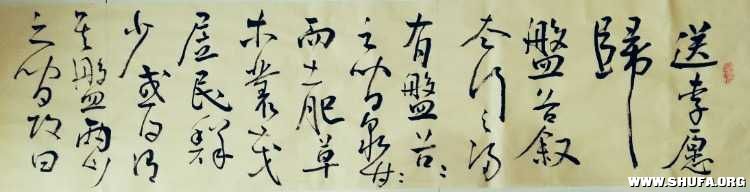 送李愿
歸
盤谷叙
太行之陽
有盤谷::
之間泉甘
而土肥草
木叢茂
居民鮮
少或曰謂
其盤兩山
之間故曰
WWW.SHUFA.ORG